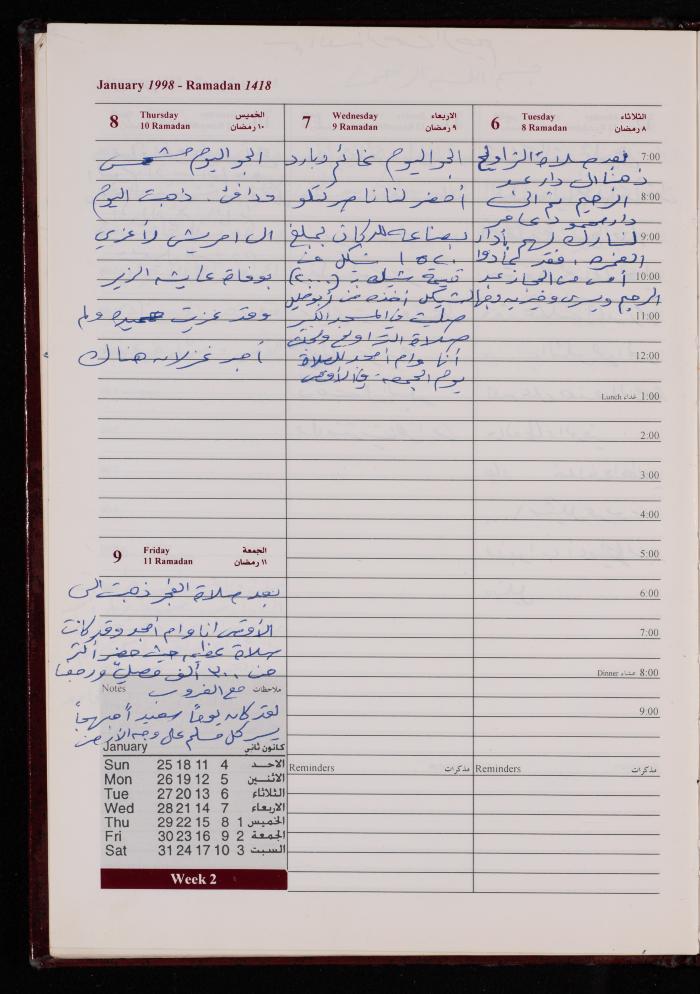 January 1998 - Ramadan 1418
6 Tuesday الثلاثاء
8 Ramadan ٨ رمضان
بعد صلاة التراويح
ذهبنا الى دار عبد
الرحيم ثم الى
دار محمود داعا عامر
لنبارك لهم بأداء
العمره، فقد عادوا
أمس من الحجاز عبد
الرحيم ويسرى وخيريه
7:00
8:00
9:00
10:00
11:00
12:00
Lunch غداء 1:00
2:00
3:00
4:00
5:00
6:00
7:00
Dinner عشاء 8:00
9:00
Reminders مذكرات
7 Wednesday الاربعاء
9 Ramadan ٩ رمضان
الجو اليوم غائم وبارد
أحضر لنا ناصر تنكو
بضاعه للدكان بمبلغ
١٥٢٠ شيكل عن
قيمة شيك بـ (٢٠٠٠)
الشيكل أخذه من
صليت في المسجد الكبير
صلاة التراويح
أنا وام أمجد للصلاة
يوم الجمعه في الأقصى
Reminders مذكرات
8 Thursday الخميس
10 Ramadan ١٠ رمضان
الجو اليوم مشمس
ودافئ. ذهبت اليوم
الى امريش لأعزي
بوفاة عايشه الزير
وقد عزيت حميده ولم
أجد غزلان هناك
9 Friday الجمعة
11 Ramadan ١١ رمضان
بعد صلاة الفجر ذهبت الى
الأقصى انا وام أمجد وقد كانت
صلاة عظيمه حيث حضر أكثر
من ٣٠٠ ألف مصليّ ورجعنا
Notes ملاحظات
مع الغروب
لقد كان يوماً سعيداً بهيجاً
يسر كل مسلم على وجه الأرض
January كانون ثاني
Sun 25 18 11 4 الاحد
Mon 26 19 12 5 الاثنين
Tue 27 20 13 6 الثلاثاء
Wed 28 21 14 7 الاربعاء
Thu 29 22 15 8 1 الخميس
Fri 30 23 16 9 2 الجمعة
Sat 31 24 17 10 3 السبت
Week 2